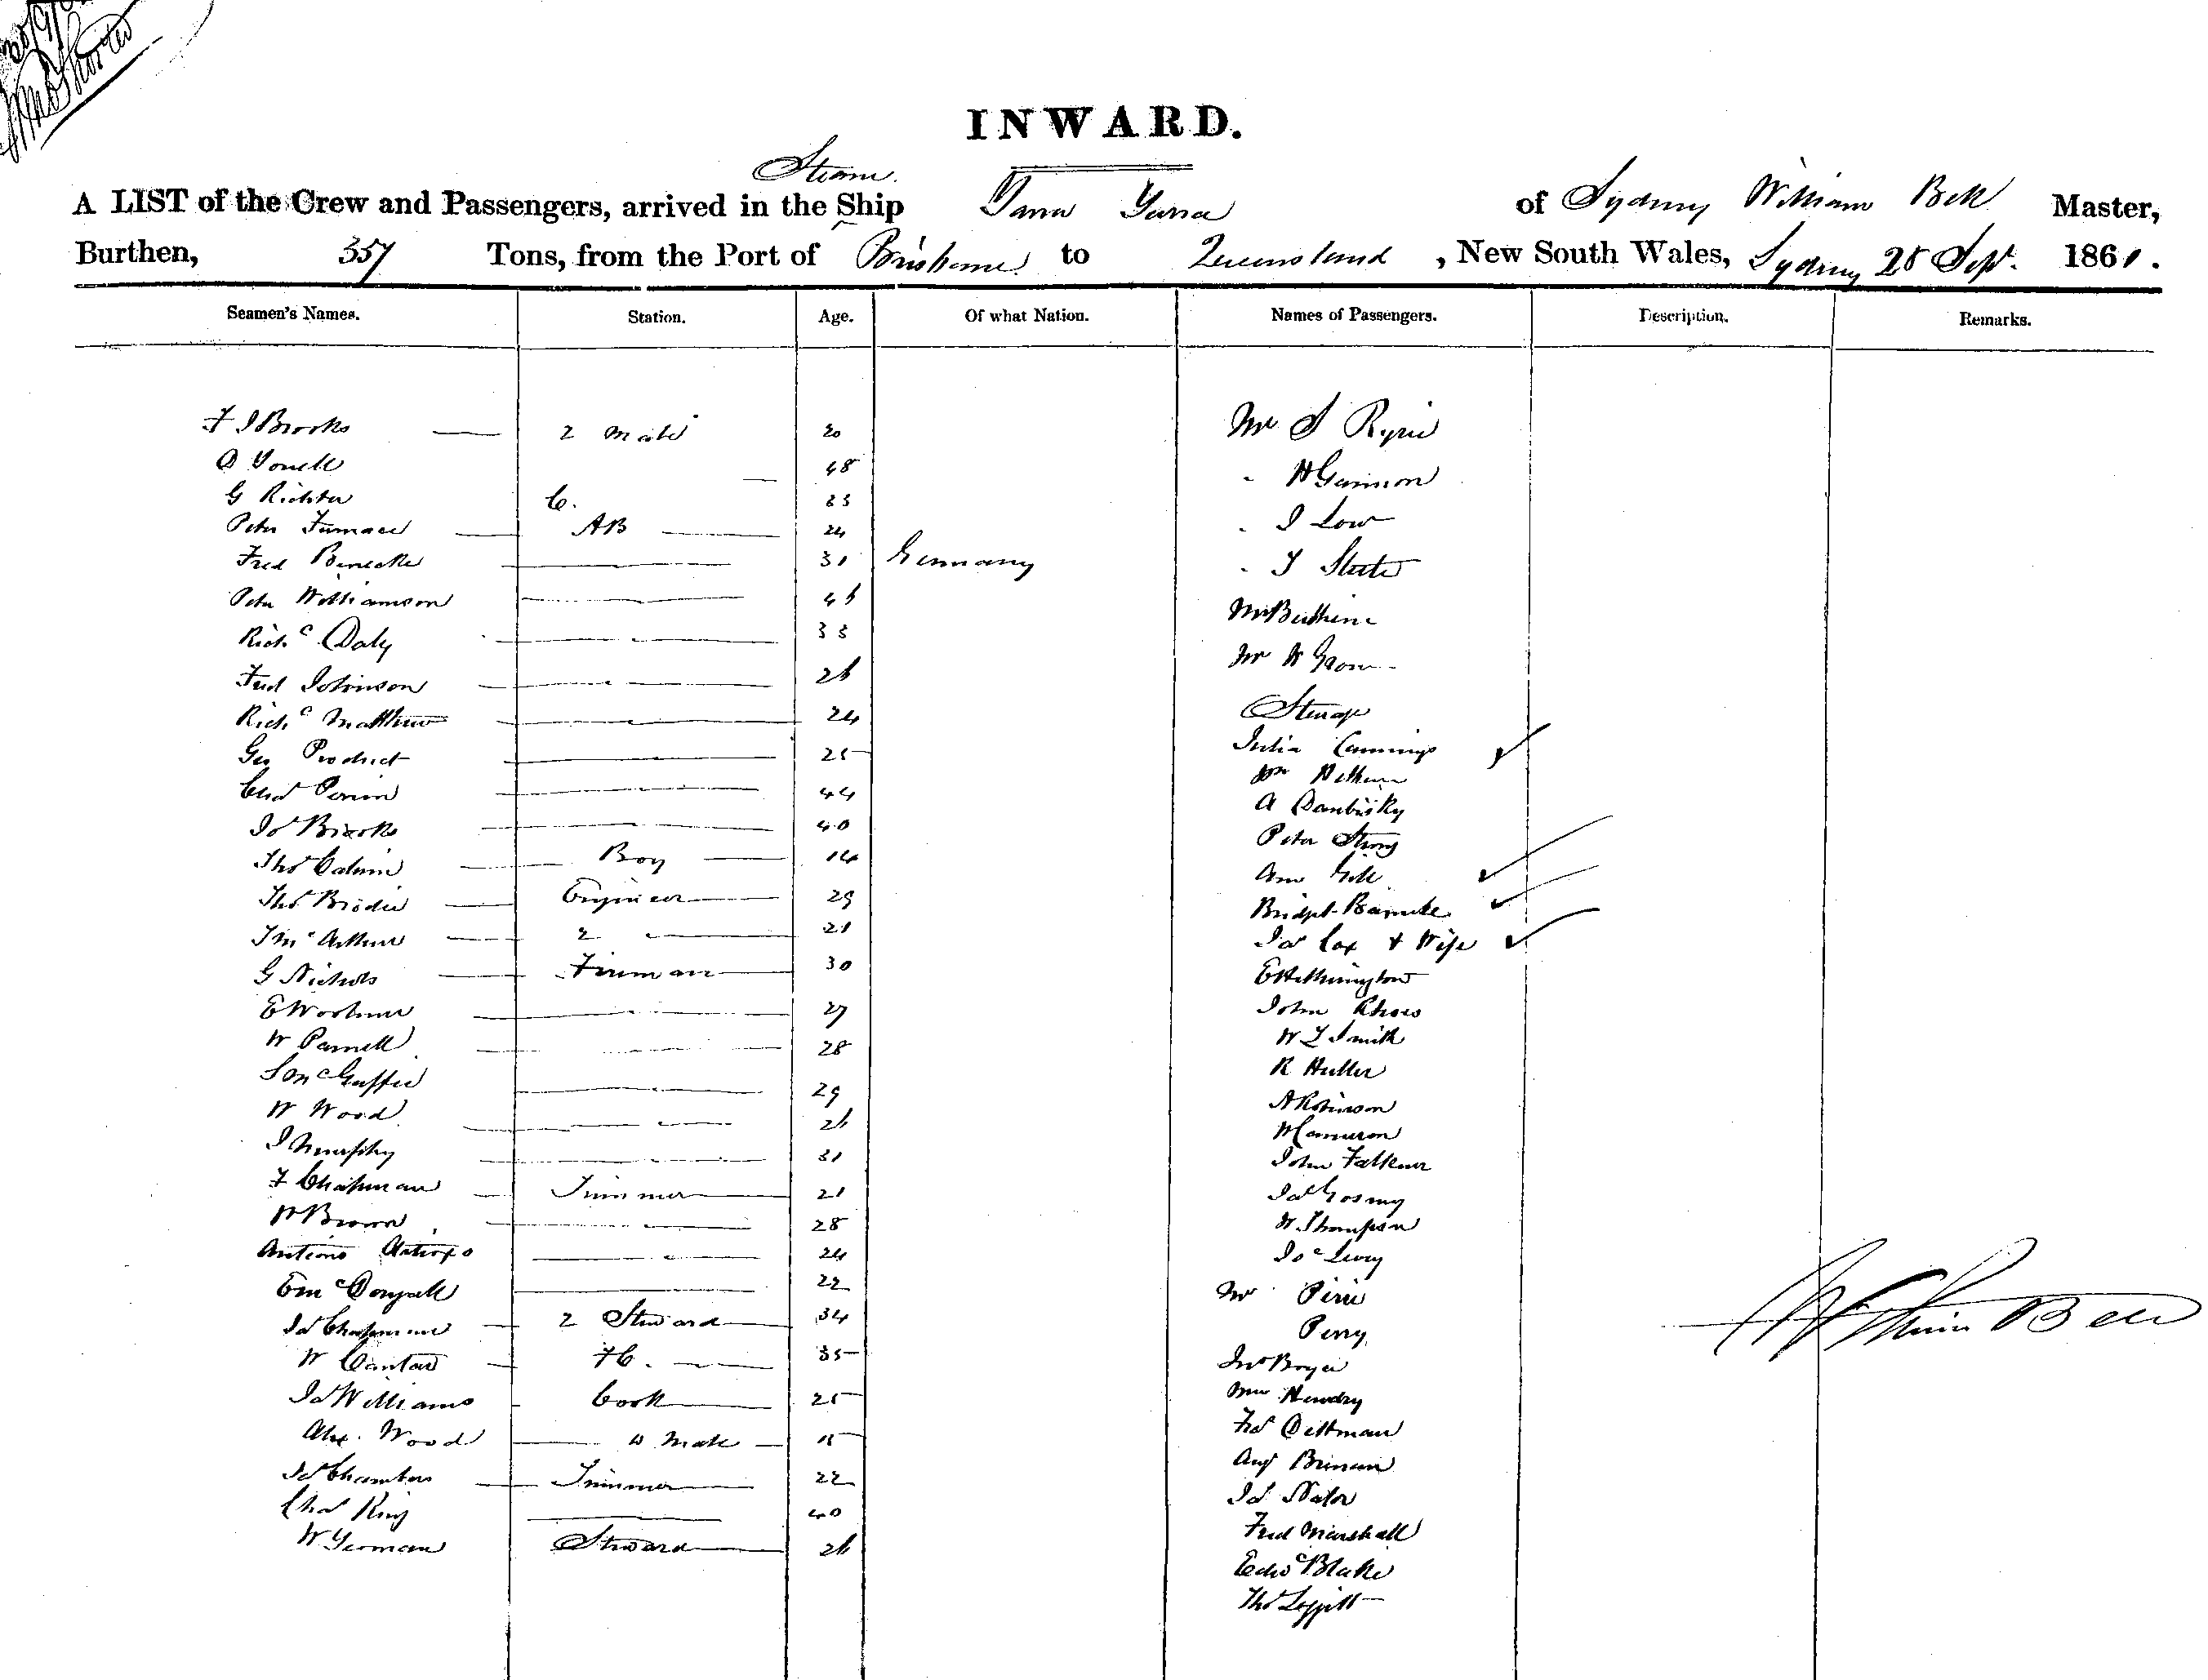 INWARD.
A LIST of the Crew and Passengers, arrived in the Steam Ship Yarra Yarra of Sydney William Bell Master,
Burthen, 357 Tons, from the Port of Brisbane to Queensland, New South Wales, Sydney 28 Sept. 1861.
Seamen's Names. Station. Age. Of what Nation. Names of Passengers. Description. Remarks.
F J Brooks 2 Mate 20 Mr S Ryrie
D Youell 48 " H Gannon
G Richter C. 23 " J Low
Peter Furnace AB 24
Fred Benecke 31 Germany " J
Peter Williamson
Richd Daly 33
Fred Johnson 26 Mr W
Richd Matthew 24 Steerage
Geo Product 25 Julia Cummings
Chas Perrin 44 Wm
Jas 40 A
Thos Calvin Boy 14 Peter Strong
Ann Gill
Thos Brodie Engineer 29 Bridget
J McArthur 2 21 Jas Cox & Wife
G Nichols Fireman 30 E Hetherington
E 27 John
W Parnell 28 W L Smith
J McGuffie 29 R
W Wood 26 A Robinson
J Murphy 31 W Cameron
F Chapman Trimmer 21 John Falkner
W Brown 28 Jas
Antonio 24 W. Thompson
E McDougall 22
Jas Chapman 2 Steward 34 Mr Pirie
W F C. 35 Perry
Jas Williams Cook 25 Jno Boyce
Alex. Wood Mate Hendry
Jas Chambers Trimmer 22 Dittman
Chas King 40 Aug
W Yeoman Steward 26 Jas
Fred Marshall
Blake
Thos Leppitt
William Bell